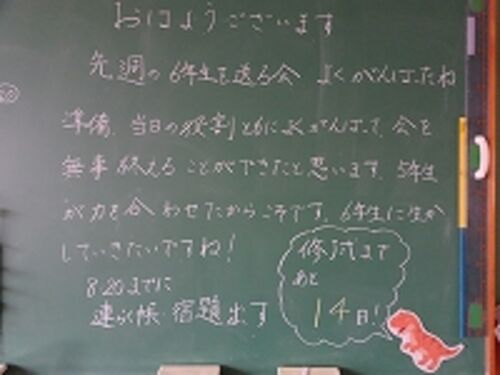 おはようございます
先週の6年生を送る会 よくがんばったね
準備、当日の役割ともによくがんばって、会を
無事終えることができたと思います。5年生
が力を合わせたからこそです。6年生に生か
していきたいですね!
8:20までに
連らく帳・宿題出す
修了式まで
あと
14日!